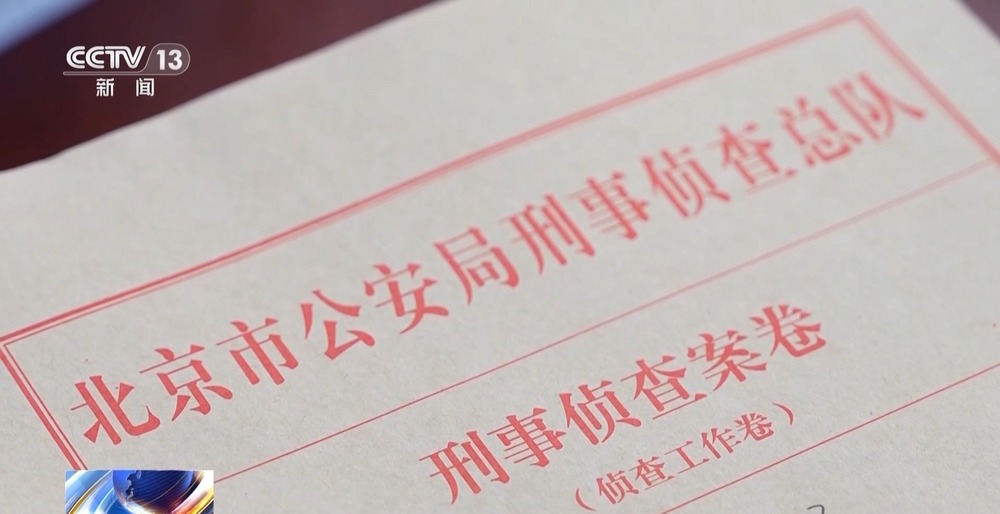 CCTV 13
新闻
北京市公安局刑事侦查总队
刑事侦查案卷
（侦查工作卷）